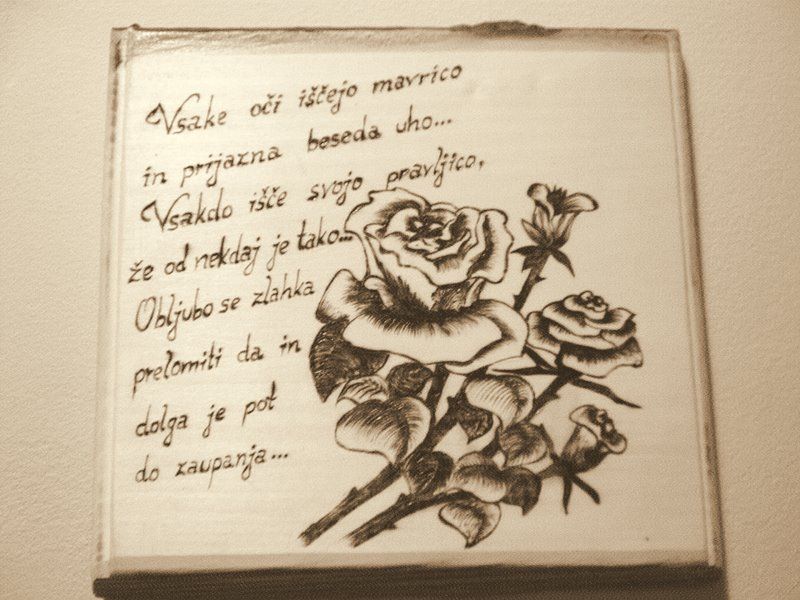 Vsake oči iščejo mavrico
in prijazna beseda uho...
Vsakdo išče svojo pravljico,
že od nekdaj je tako...
Obljubo se zlahka
prelomiti da in
dolga je pot
do zaupanja...